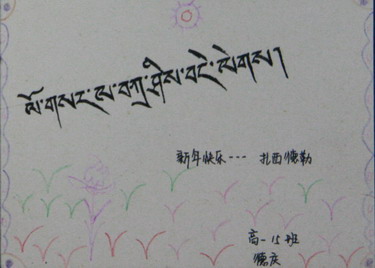 ལོ་གསར་ལ་བཀྲ་ཤིས་བདེ་ལེགས།
新年快乐--- 扎西德勒
高一15班
德庆